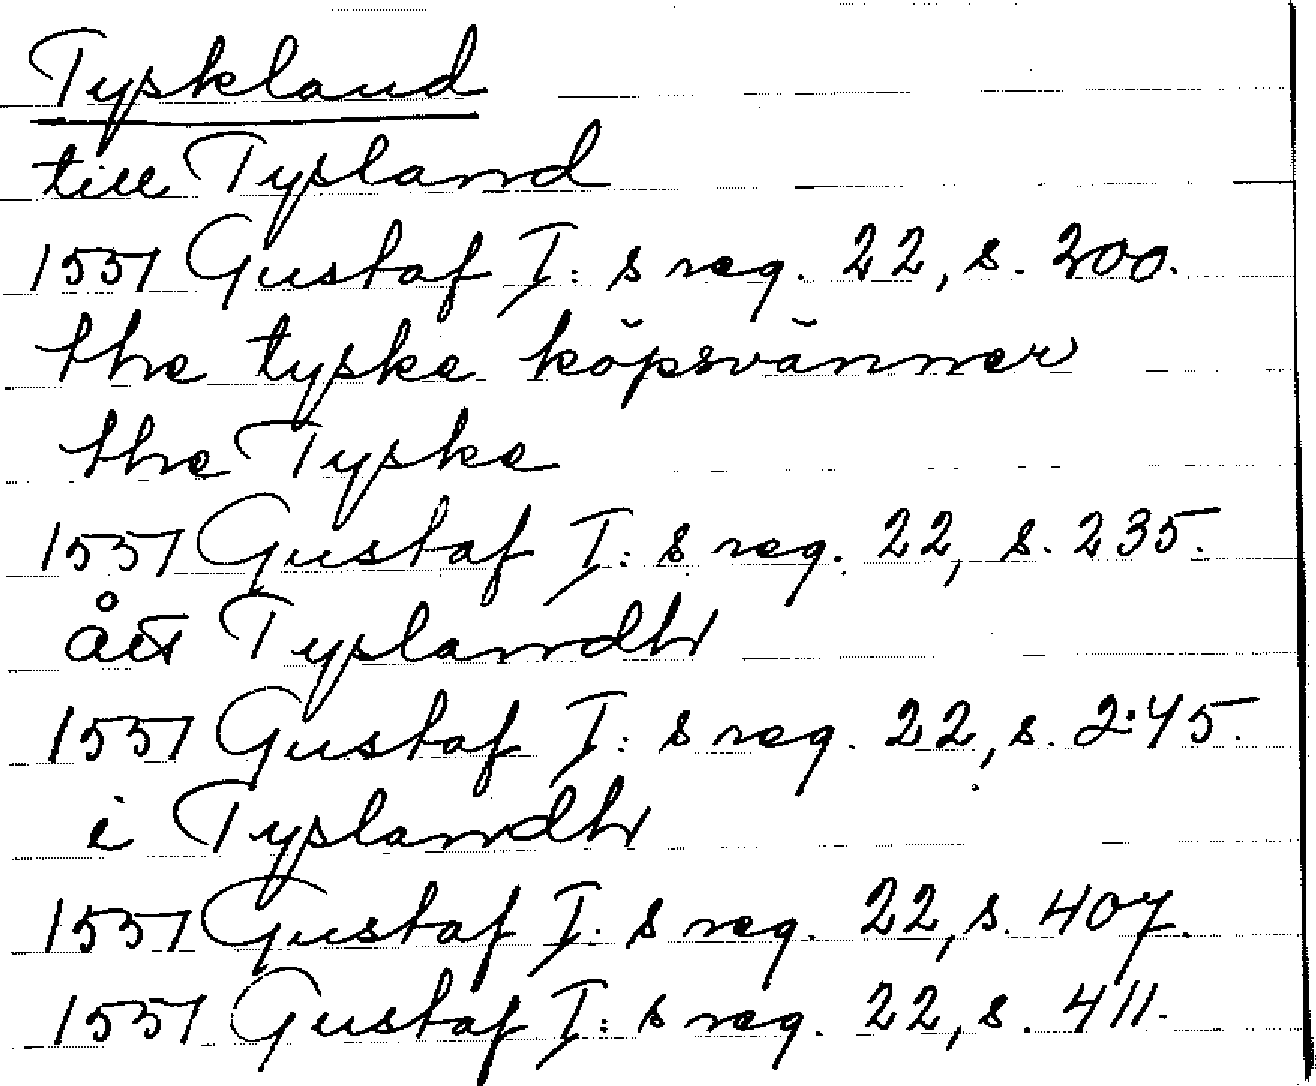 Tyskland
till Tysland
1551 Gustaf I:s reg. 22, s. 200.
the tyske köpsvänner
the Tyske
1551 Gustaf I:s reg. 22, s. 235.
ått Tyslandh
1551 Gustaf I:s reg. 22, s. 245.
i Tyslandh
1551 Gustaf I:s reg. 22, s. 407.
1551 Gustaf I:s reg. 22, s. 411.